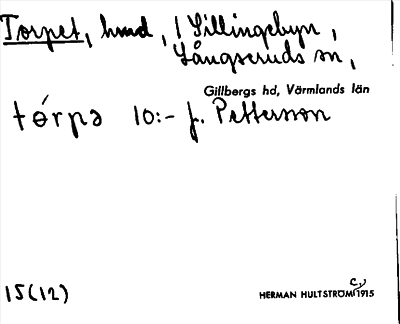 Torpet, hmd, i Sillingebyn,
Långseruds sn,
Gillbergs hd, Värmlands län
tórpə 10:- f. Pettersson
15(12) HERMAN HULTSTRÖM C:a 1915